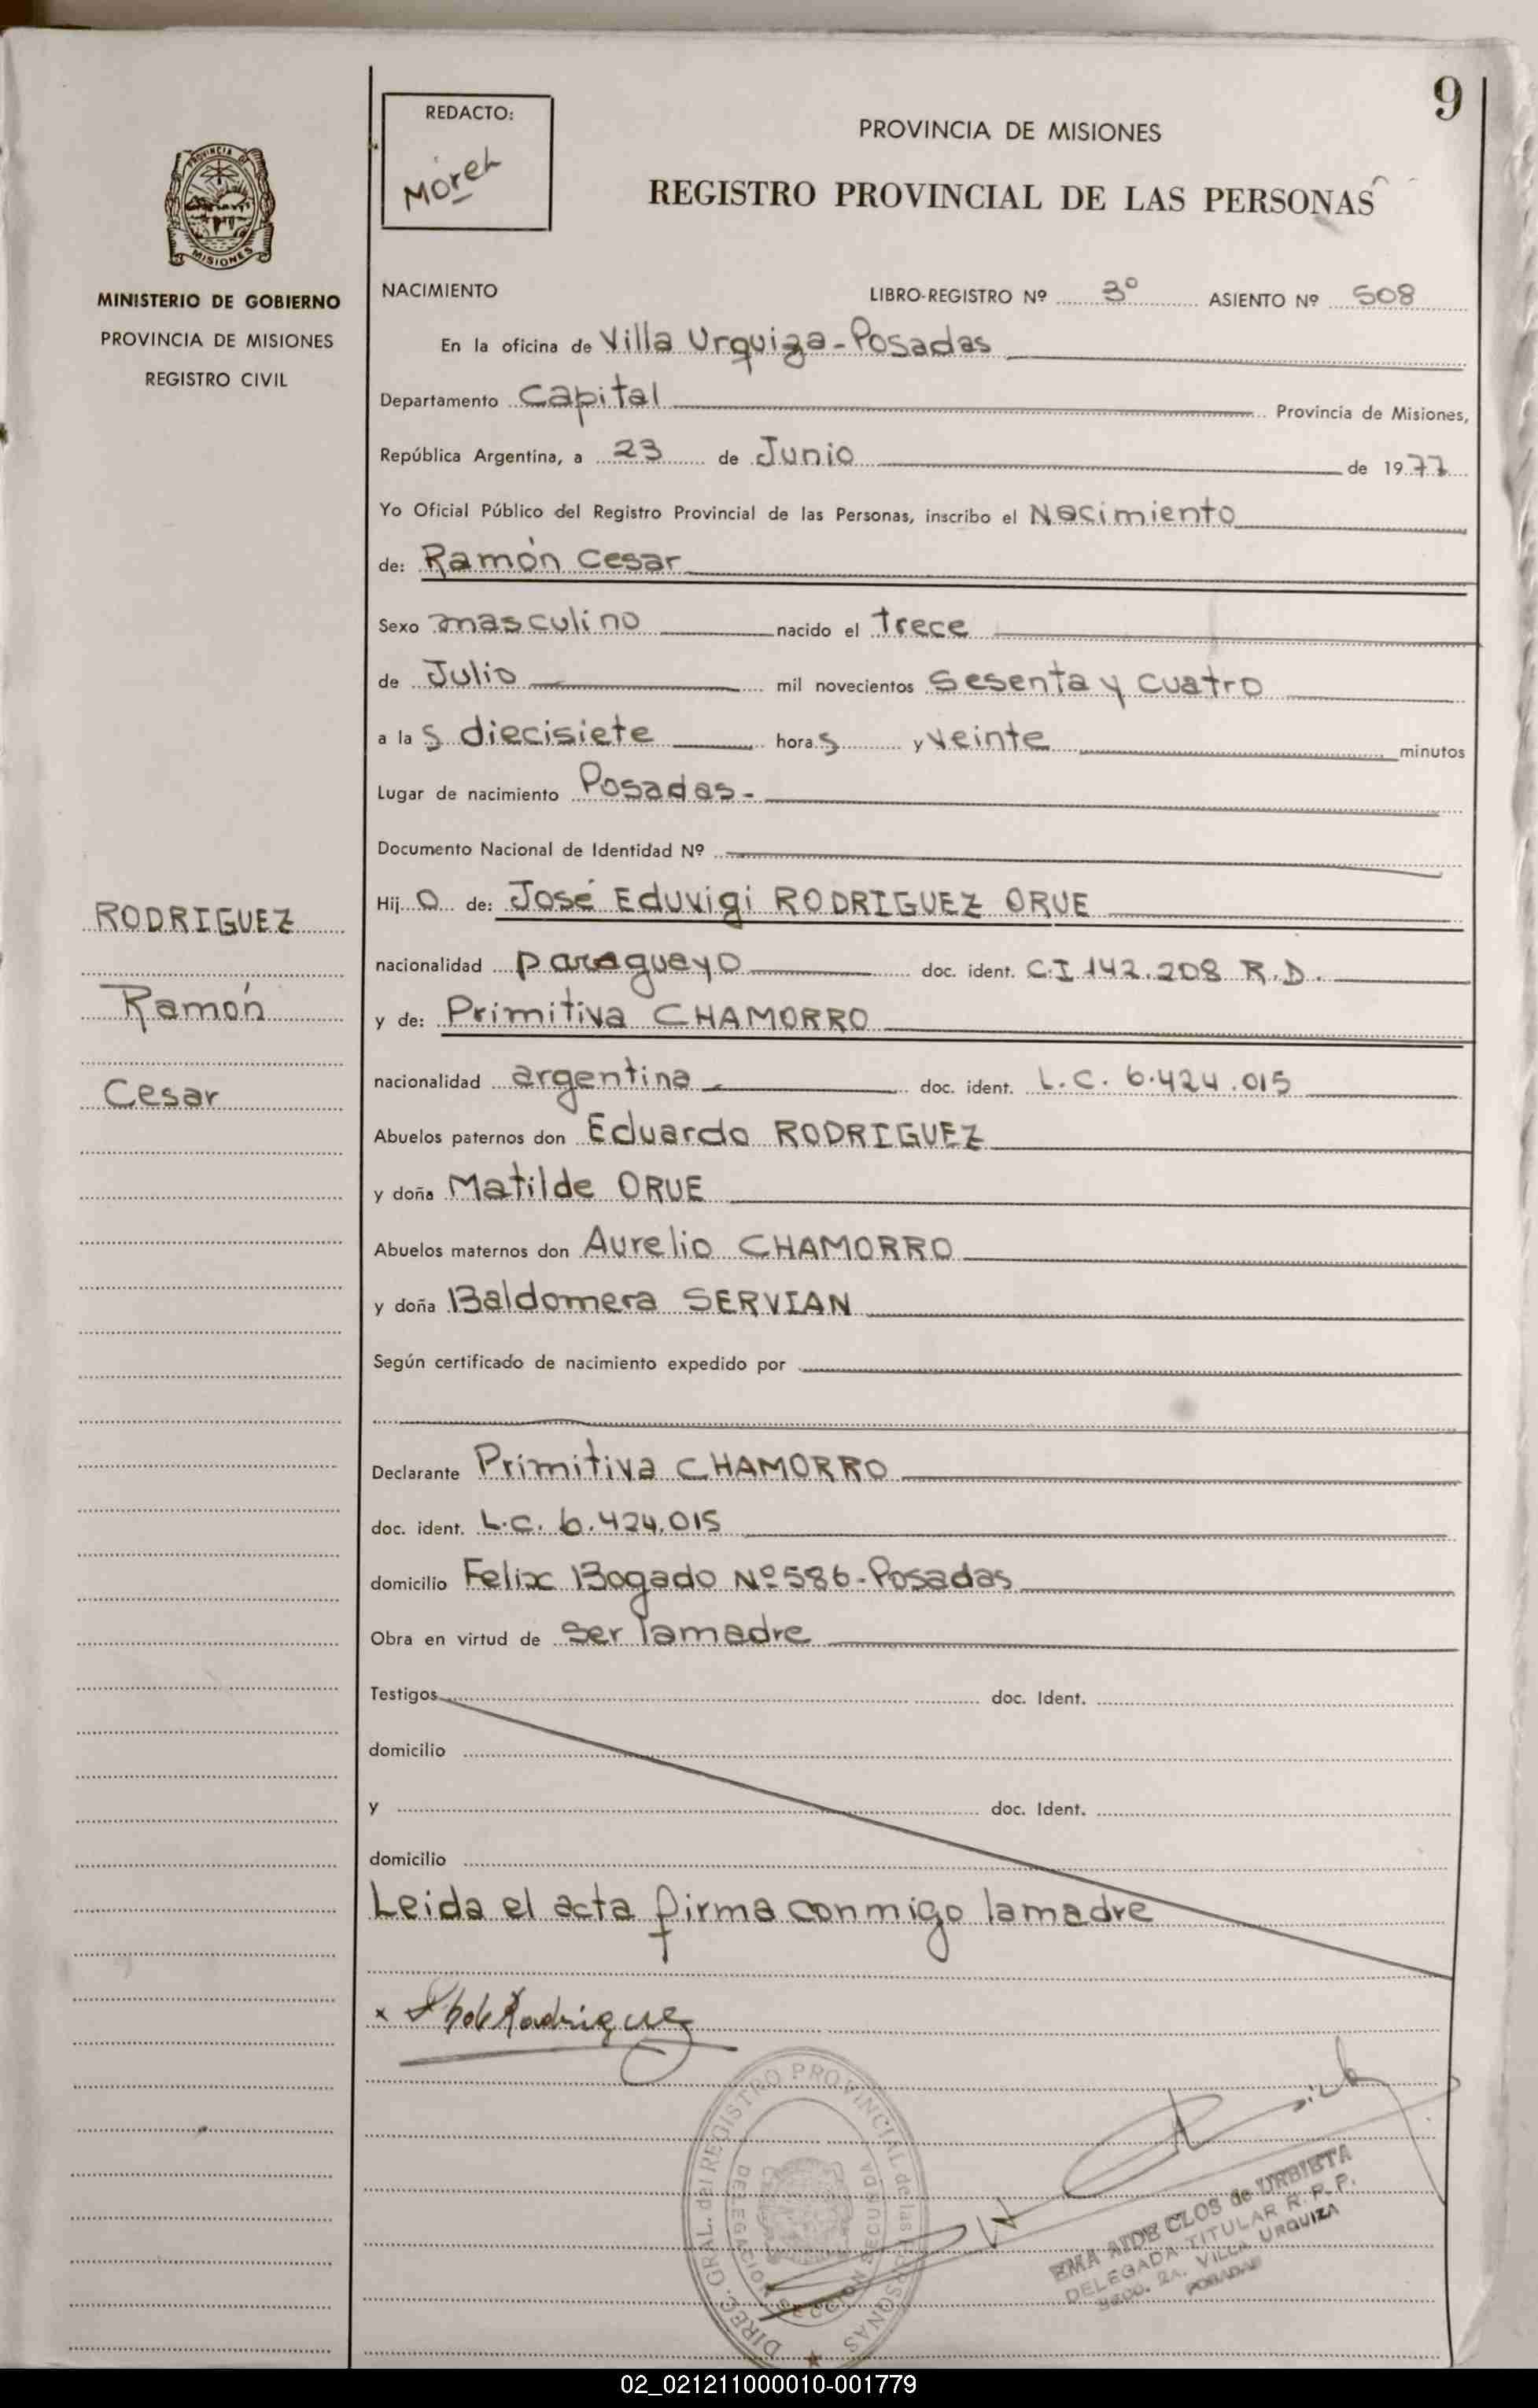 9
REDACTO:
Morel
PROVINCIA DE MISIONES
REGISTRO PROVINCIAL DE LAS PERSONAS
PROVINCIA DE
MISIONES
MINISTERIO DE GOBIERNO
PROVINCIA DE MISIONES
REGISTRO CIVIL
NACIMIENTO LIBRO-REGISTRO Nº 3º ASIENTO Nº 508
En la oficina de Villa Urquiza-Posadas
Departamento Capital Provincia de Misiones,
República Argentina, a 23 de Junio de 1977
Yo Oficial Público del Registro Provincial de las Personas, inscribo el Nacimiento
de: Ramón Cesar
Sexo masculino nacido el trece
de Julio mil novecientos Sesenta y cuatro
a las diecisiete horas y veinte minutos
Lugar de nacimiento Posadas-
Documento Nacional de Identidad Nº
RODRIGUEZ
Ramón
Cesar
Hijo de: José Eduvigi RODRIGUEZ ORUE
nacionalidad paraguayo doc. ident. C.I 142.208 R.D.
y de: Primitiva CHAMORRO
nacionalidad argentina doc. ident. L.C. 6.424.015
Abuelos paternos don Eduardo RODRIGUEZ
y doña Matilde ORUE
Abuelos maternos don Aurelio CHAMORRO
y doña Baldomera SERVIAN
Según certificado de nacimiento expedido por
Declarante Primitiva CHAMORRO
doc. ident. L.C. 6.424.015
domicilio Felix Bogado Nº 586-Posadas
Obra en virtud de Ser la madre
Testigos doc. Ident.
domicilio
y doc. Ident.
domicilio
Leida el acta firma conmigo la madre
x Rodriguez
DIREC. GRAL. del REGISTRO PROVINCIAL de las PERSONAS
DELEGACION SECCION SEGUNDA
EMA AIDE CLOS de URBIETA
DELEGADA TITULAR R. P. P.
Secc. 2a. VILLA URQUIZA
POSADAS
02_021211000010-001779